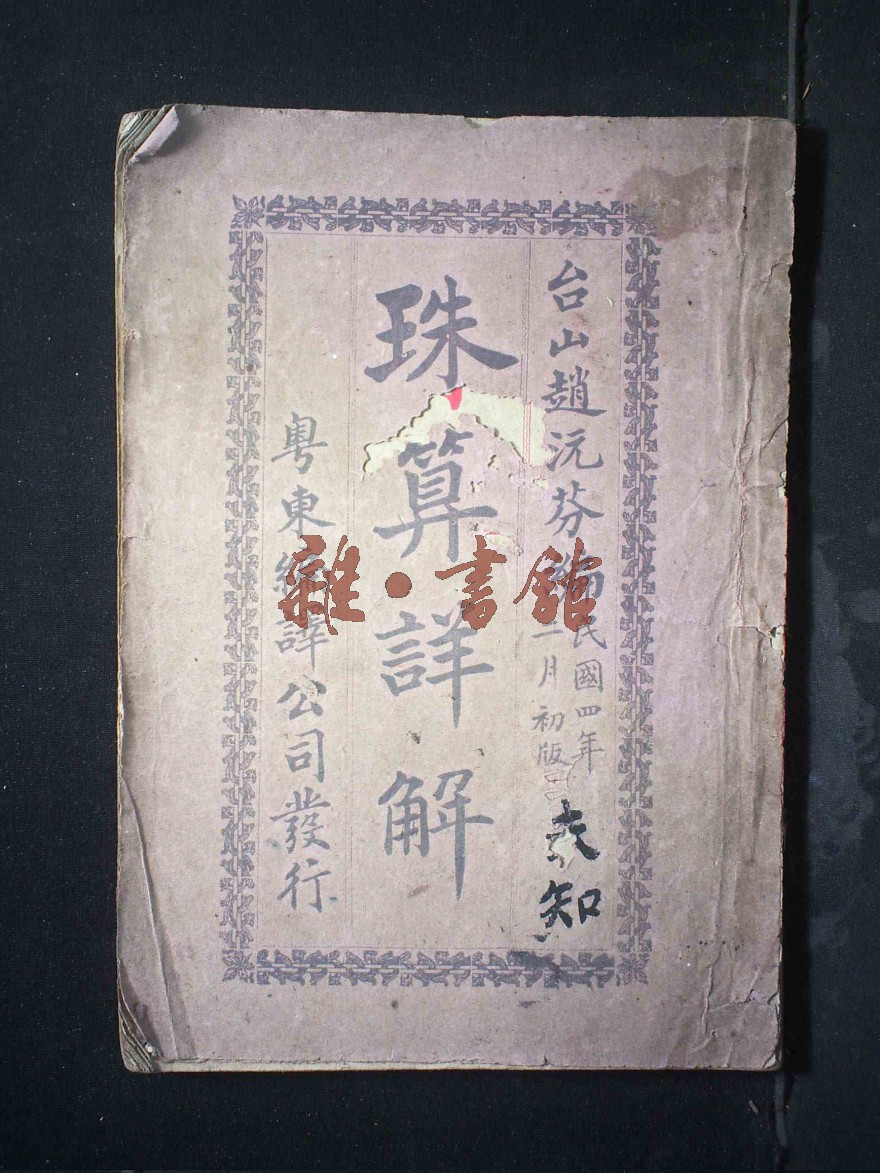 台山趙沅芬編
民國四年
二月初版
知
珠算詳解
粵東編譯公司發行
雜·書館